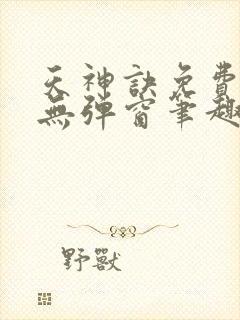 天神訣免費
無彈窗筆趣
野獸